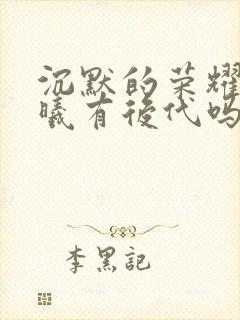 沉默的荣耀
曦有後代吗
李黑記